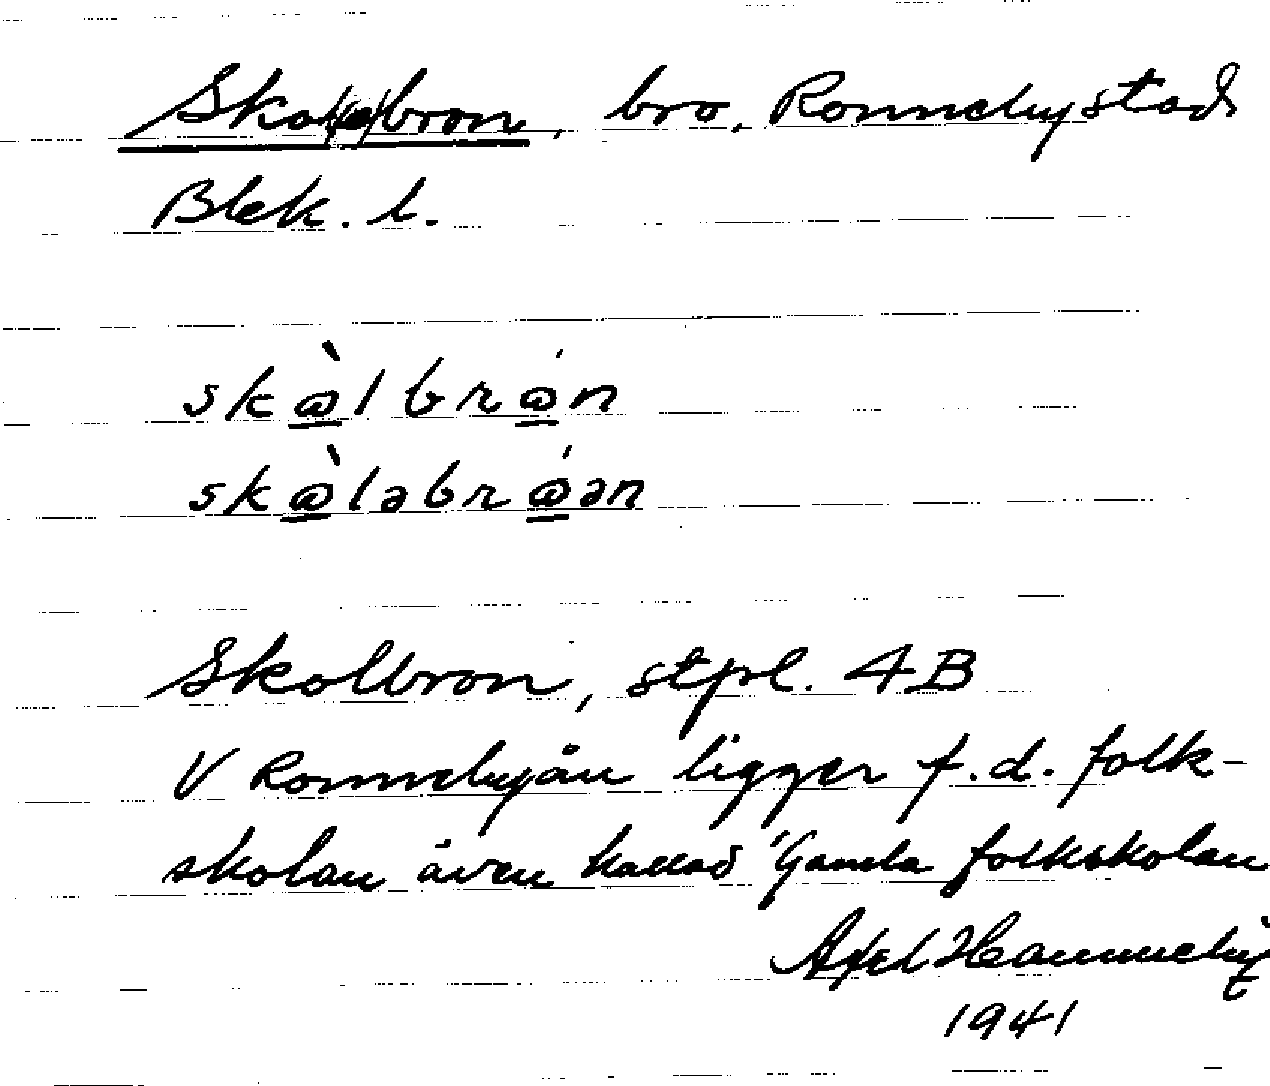 Skol(e)bron, bro, Ronneby stad
Blek. l.
skὼlbrώn
skὼləbrώən
Skolbron, stpl. 4B
V Ronnebyån ligger f.d. folk-
skolan även kallad "Gamla folkskolan
Axel Hammeby
1941